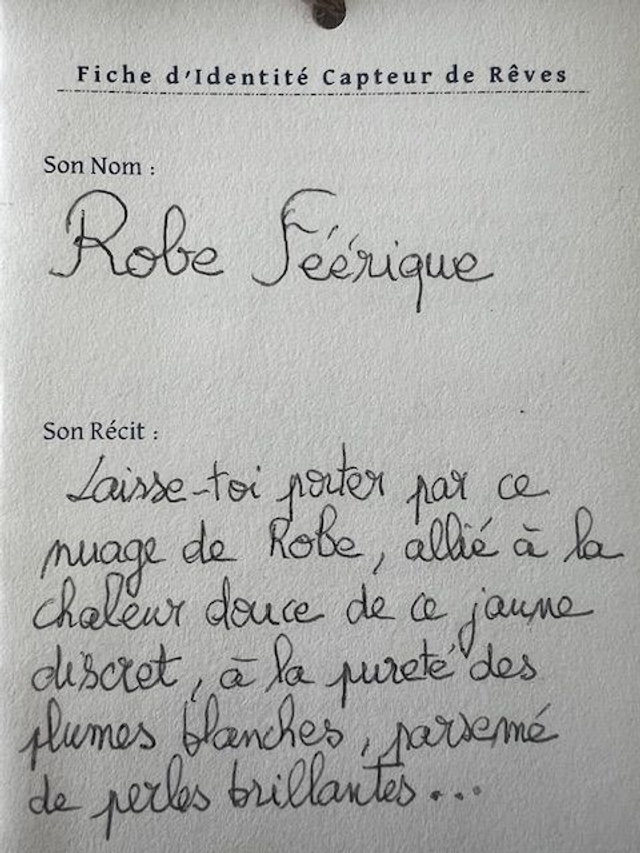 Fiche d'Identité Capteur de Rêves
Son Nom :
Robe Féérique
Son Récit :
Laisse-toi porter par ce
nuage de Robe, allié à la
chaleur douce de ce jaune
discret, à la pureté des
plumes blanches, parsemé
de perles brillantes...